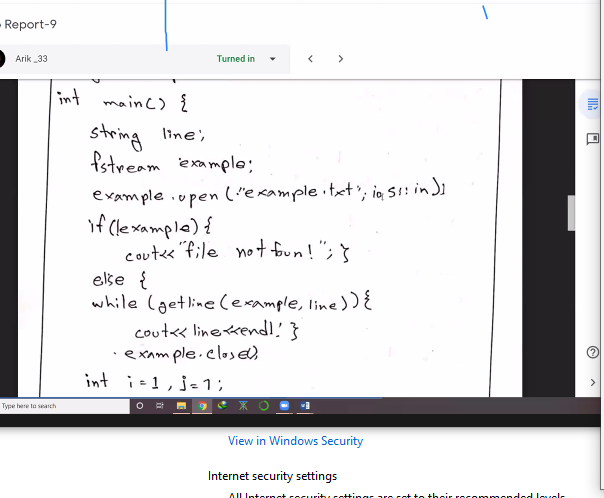 Report-9
Arik _33
Turned in
int main() {
string line;
fstream example;
example.open ("example.txt", ios::in);
if(!example){
cout<<"file not fun!"; }
else {
while (getline(example, line)){
cout<< line<<endl; }
example.close()
int i=1, j=1;
Type here to search
View in Windows Security
Internet security settings
All Internet security settings are set to their recommended levels